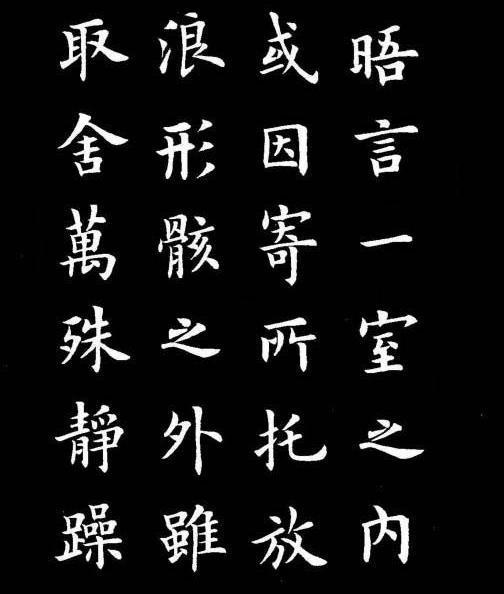 晤言一室之内
或因寄所托放
浪形骸之外雖
取舍萬殊靜躁